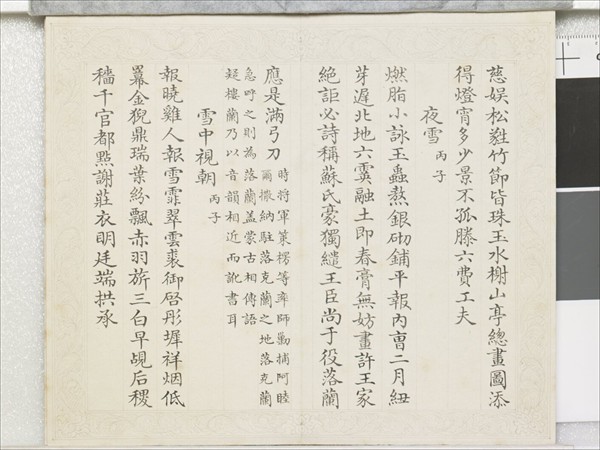 慈娛松竹節皆珠玉水榭山亭總畫圖添
得燈宵多少景不孤滕六費工夫
夜雪 丙子
燃脂小詠玉蟲熬銀砌鋪平報內曹二月紐
芽遲北地六霙融土即春膏無妨畫許王家
絕詎必詩稱蘇氏豪獨繾王臣尚于役落蘭
應是滿弓刀
時將軍策楞等率師勦捕阿睦
爾撒納駐落克蘭之地落克蘭
急呼之則為落蘭盖蒙古相傳語
疑樓蘭乃以音韻相近而訛書耳
雪中視朝 丙子
報曉雞人報雪霏翠雲裘御啓彤墀祥烟低
羃金猊鼎瑞葉紛飄赤羽旂三白早覘后稷
穡千官都點謝莊衣明廷端拱承